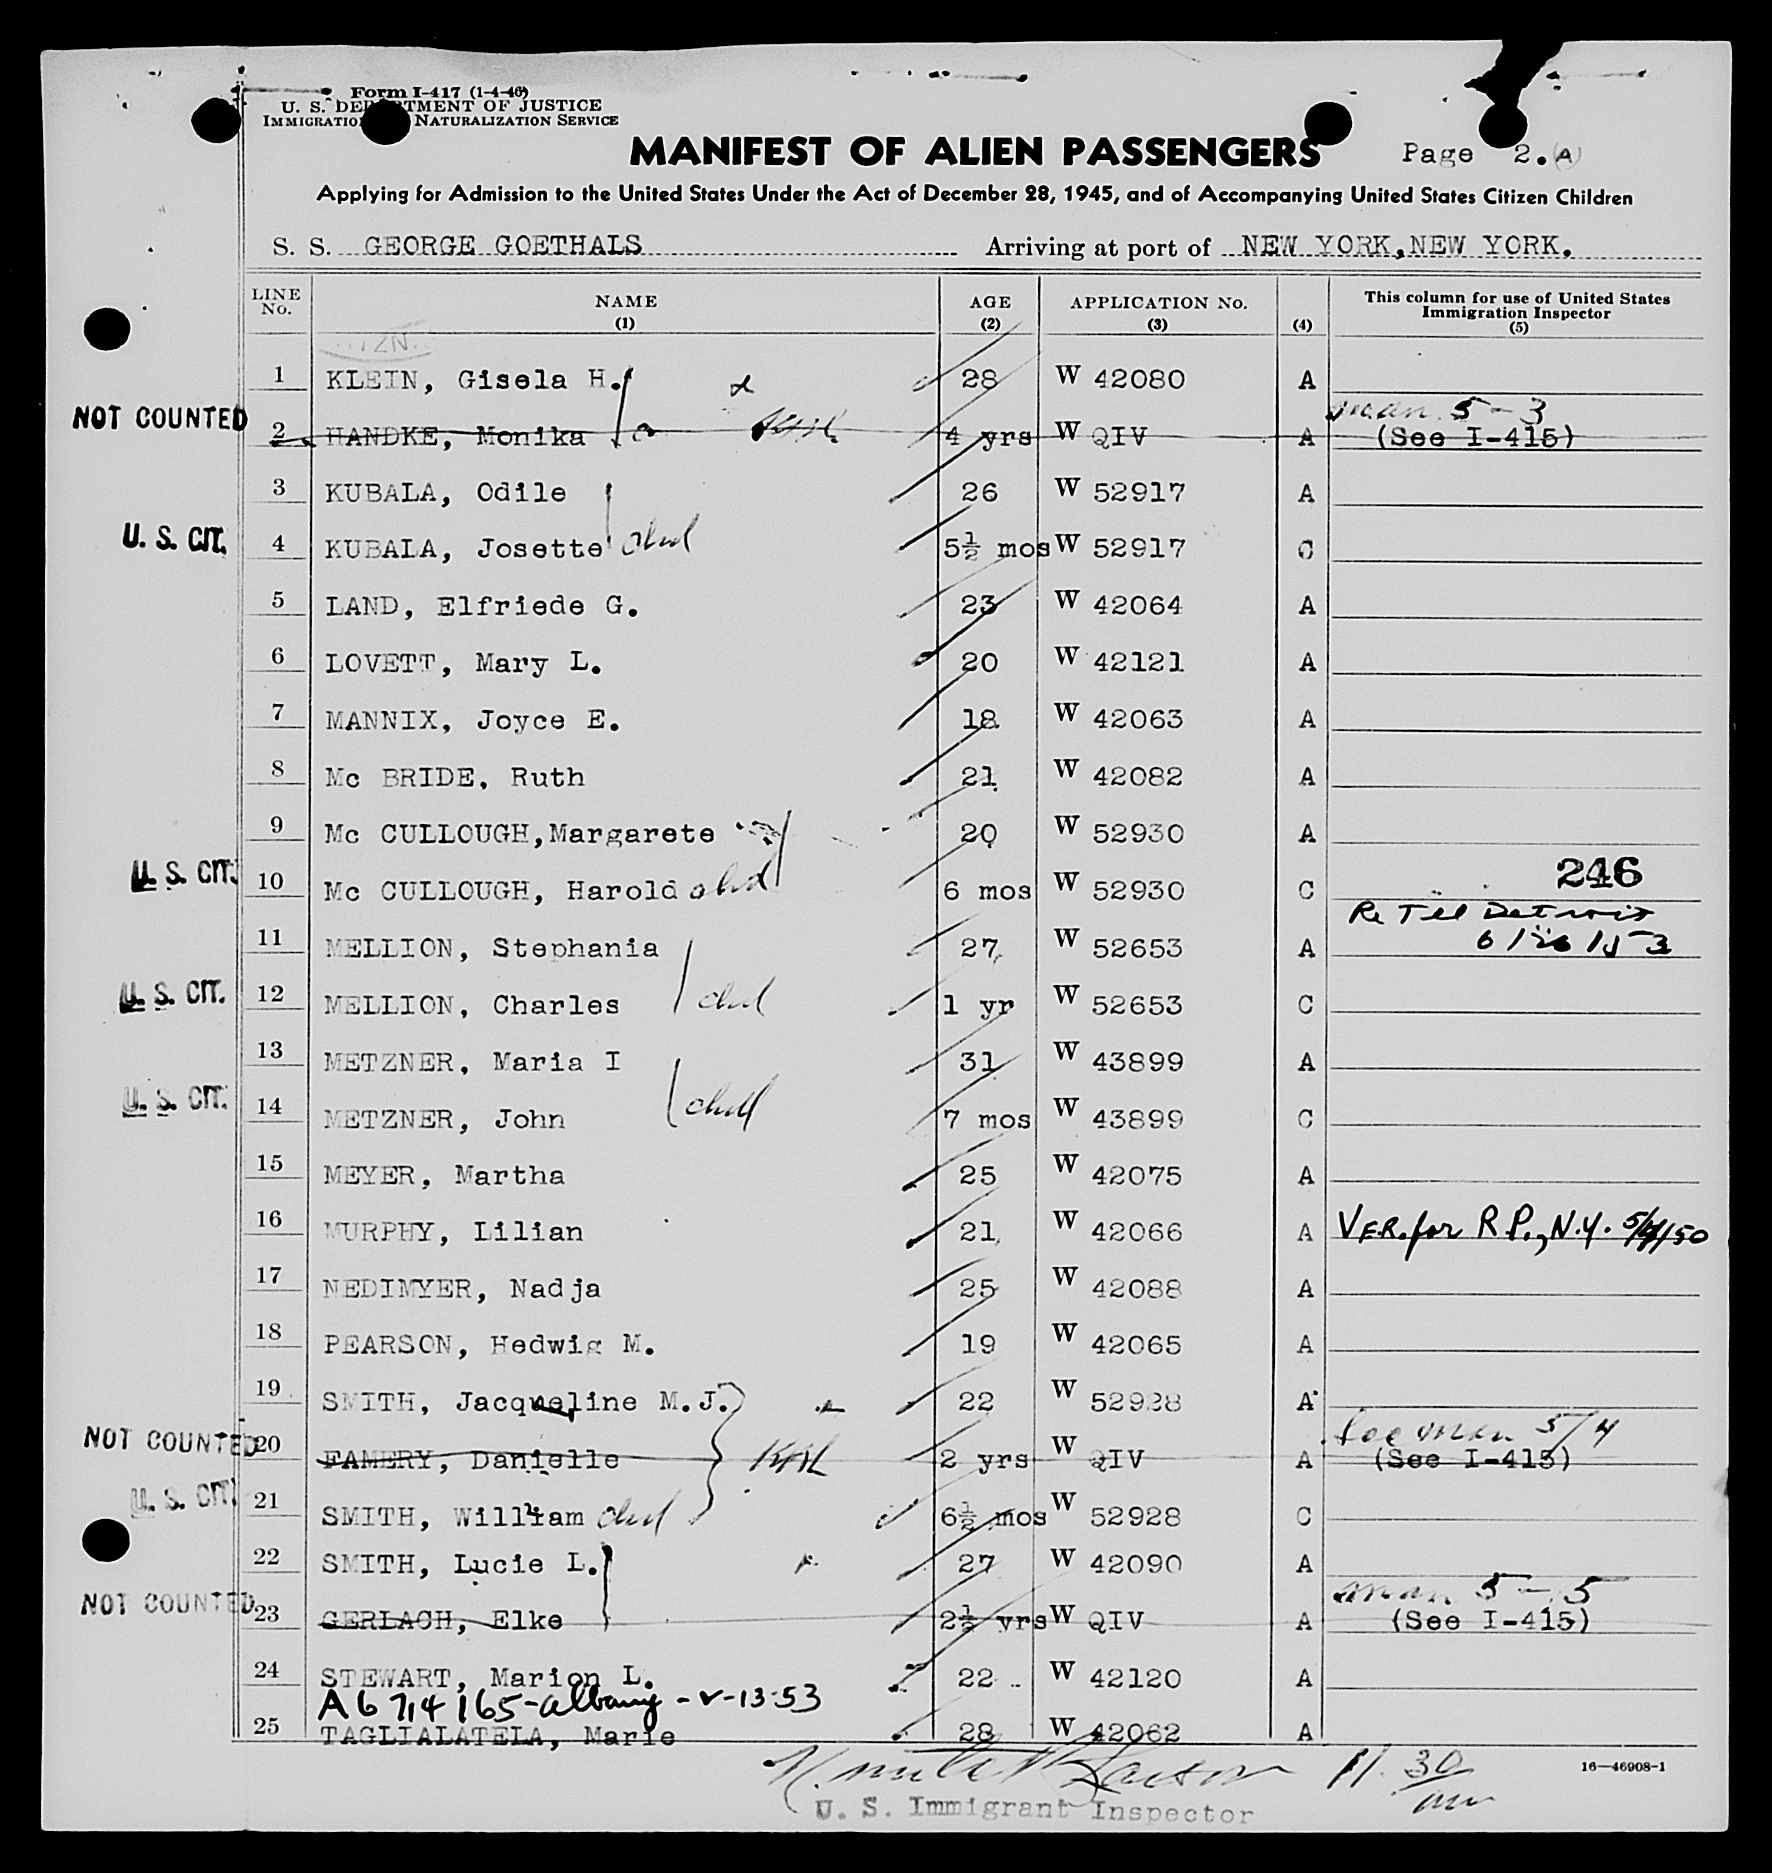 Form I-417 (1-4-46)
U. S. DEPARTMENT OF JUSTICE
IMMIGRATION NATURALIZATION SERVICE
MANIFEST OF ALIEN PASSENGERS Page 2.(A)
Applying for Admission to the United States Under the Act of December 28, 1945, and of Accompanying United States Citizen Children
S. S. GEORGE GOETHALS Arriving at port of NEW YORK,NEW YORK.
LINE No. NAME (1) AGE (2) APPLICATION No. (3) (4) This column for use of United States Immigration Inspector (5)
1 KLEIN, Gisela H. 28 W 42080 A
man 5-3
NOT COUNTED 2 HANDKE, Monika 4 yrs W QIV A (See I-415)
3 KUBALA, Odile 26 W 52917 A
U. S. CIT. 4 KUBALA, Josette chd 5½ mos W 52917 C
5 LAND, Elfriede G. 23 W 42064 A
6 LOVETT, Mary L. 20 W 42121 A
7 MANNIX, Joyce E. 18 W 42063 A
8 Mc BRIDE, Ruth 21 W 42082 A
9 Mc CULLOUGH,Margarete 20 W 52930 A
246
U. S. CIT. 10 Mc CULLOUGH, Harold chd 6 mos W 52930 C
Re Tel Detroit
11 MELLION, Stephania 27 W 52653 A 6/26/53
U. S. CIT. 12 MELLION, Charles chd 1 yr W 52653 C
13 METZNER, Maria I 31 W 43899 A
U. S. CIT. 14 METZNER, John chd 7 mos W 43899 C
15 MEYER, Martha 25 W 42075 A
16 MURPHY, Lilian 21 W 42066 A VER. for R.P., N.Y. 5/4/50
17 NEDIMYER, Nadja 25 W 42088 A
18 PEARSON, Hedwig M. 19 W 42065 A
19 SMITH, Jacqueline M.J. 22 W 52928 A
See man 5/4
NOT COUNTED 20 FAMERY, Danielle 2 yrs W QIV A (See I-415)
U. S. CIT. 21 SMITH, William chd 6½ mos W 52928 C
22 SMITH, Lucie L. 27 W 42090 A
man 5-5
NOT COUNTED 23 GERLACH, Elke 2½ yrs W QIV A (See I-415)
24 STEWART, Marion L. 22 W 42120 A
A6 714 165-albany -v-13-53
25 TAGLIALATELA, Marie 28 W 42062 A
11.30 am
16—46908-1
U. S. Immigrant Inspector